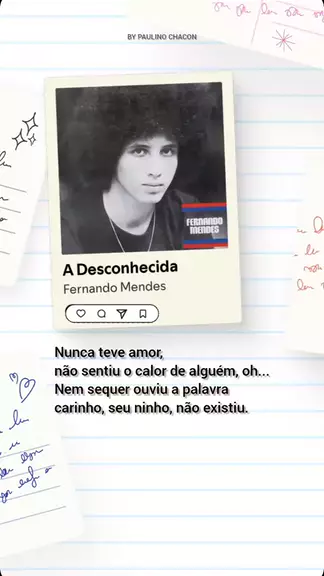 BY PAULINO CHACON
FERNANDO
MENDES
A Desconhecida
Fernando Mendes
Nunca teve amor,
não sentiu o calor de alguém, oh...
Nem sequer ouviu a palavra
carinho, seu ninho, não existiu.